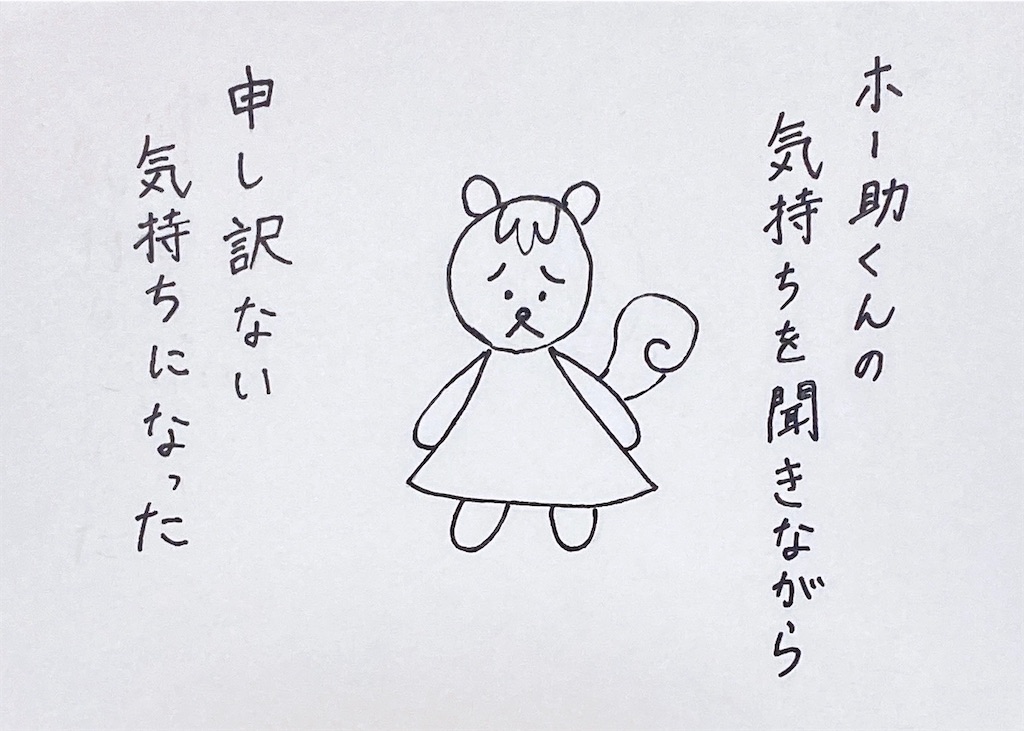 ホー助くんの
気持ちを聞きながら
申し訳ない
気持ちになった